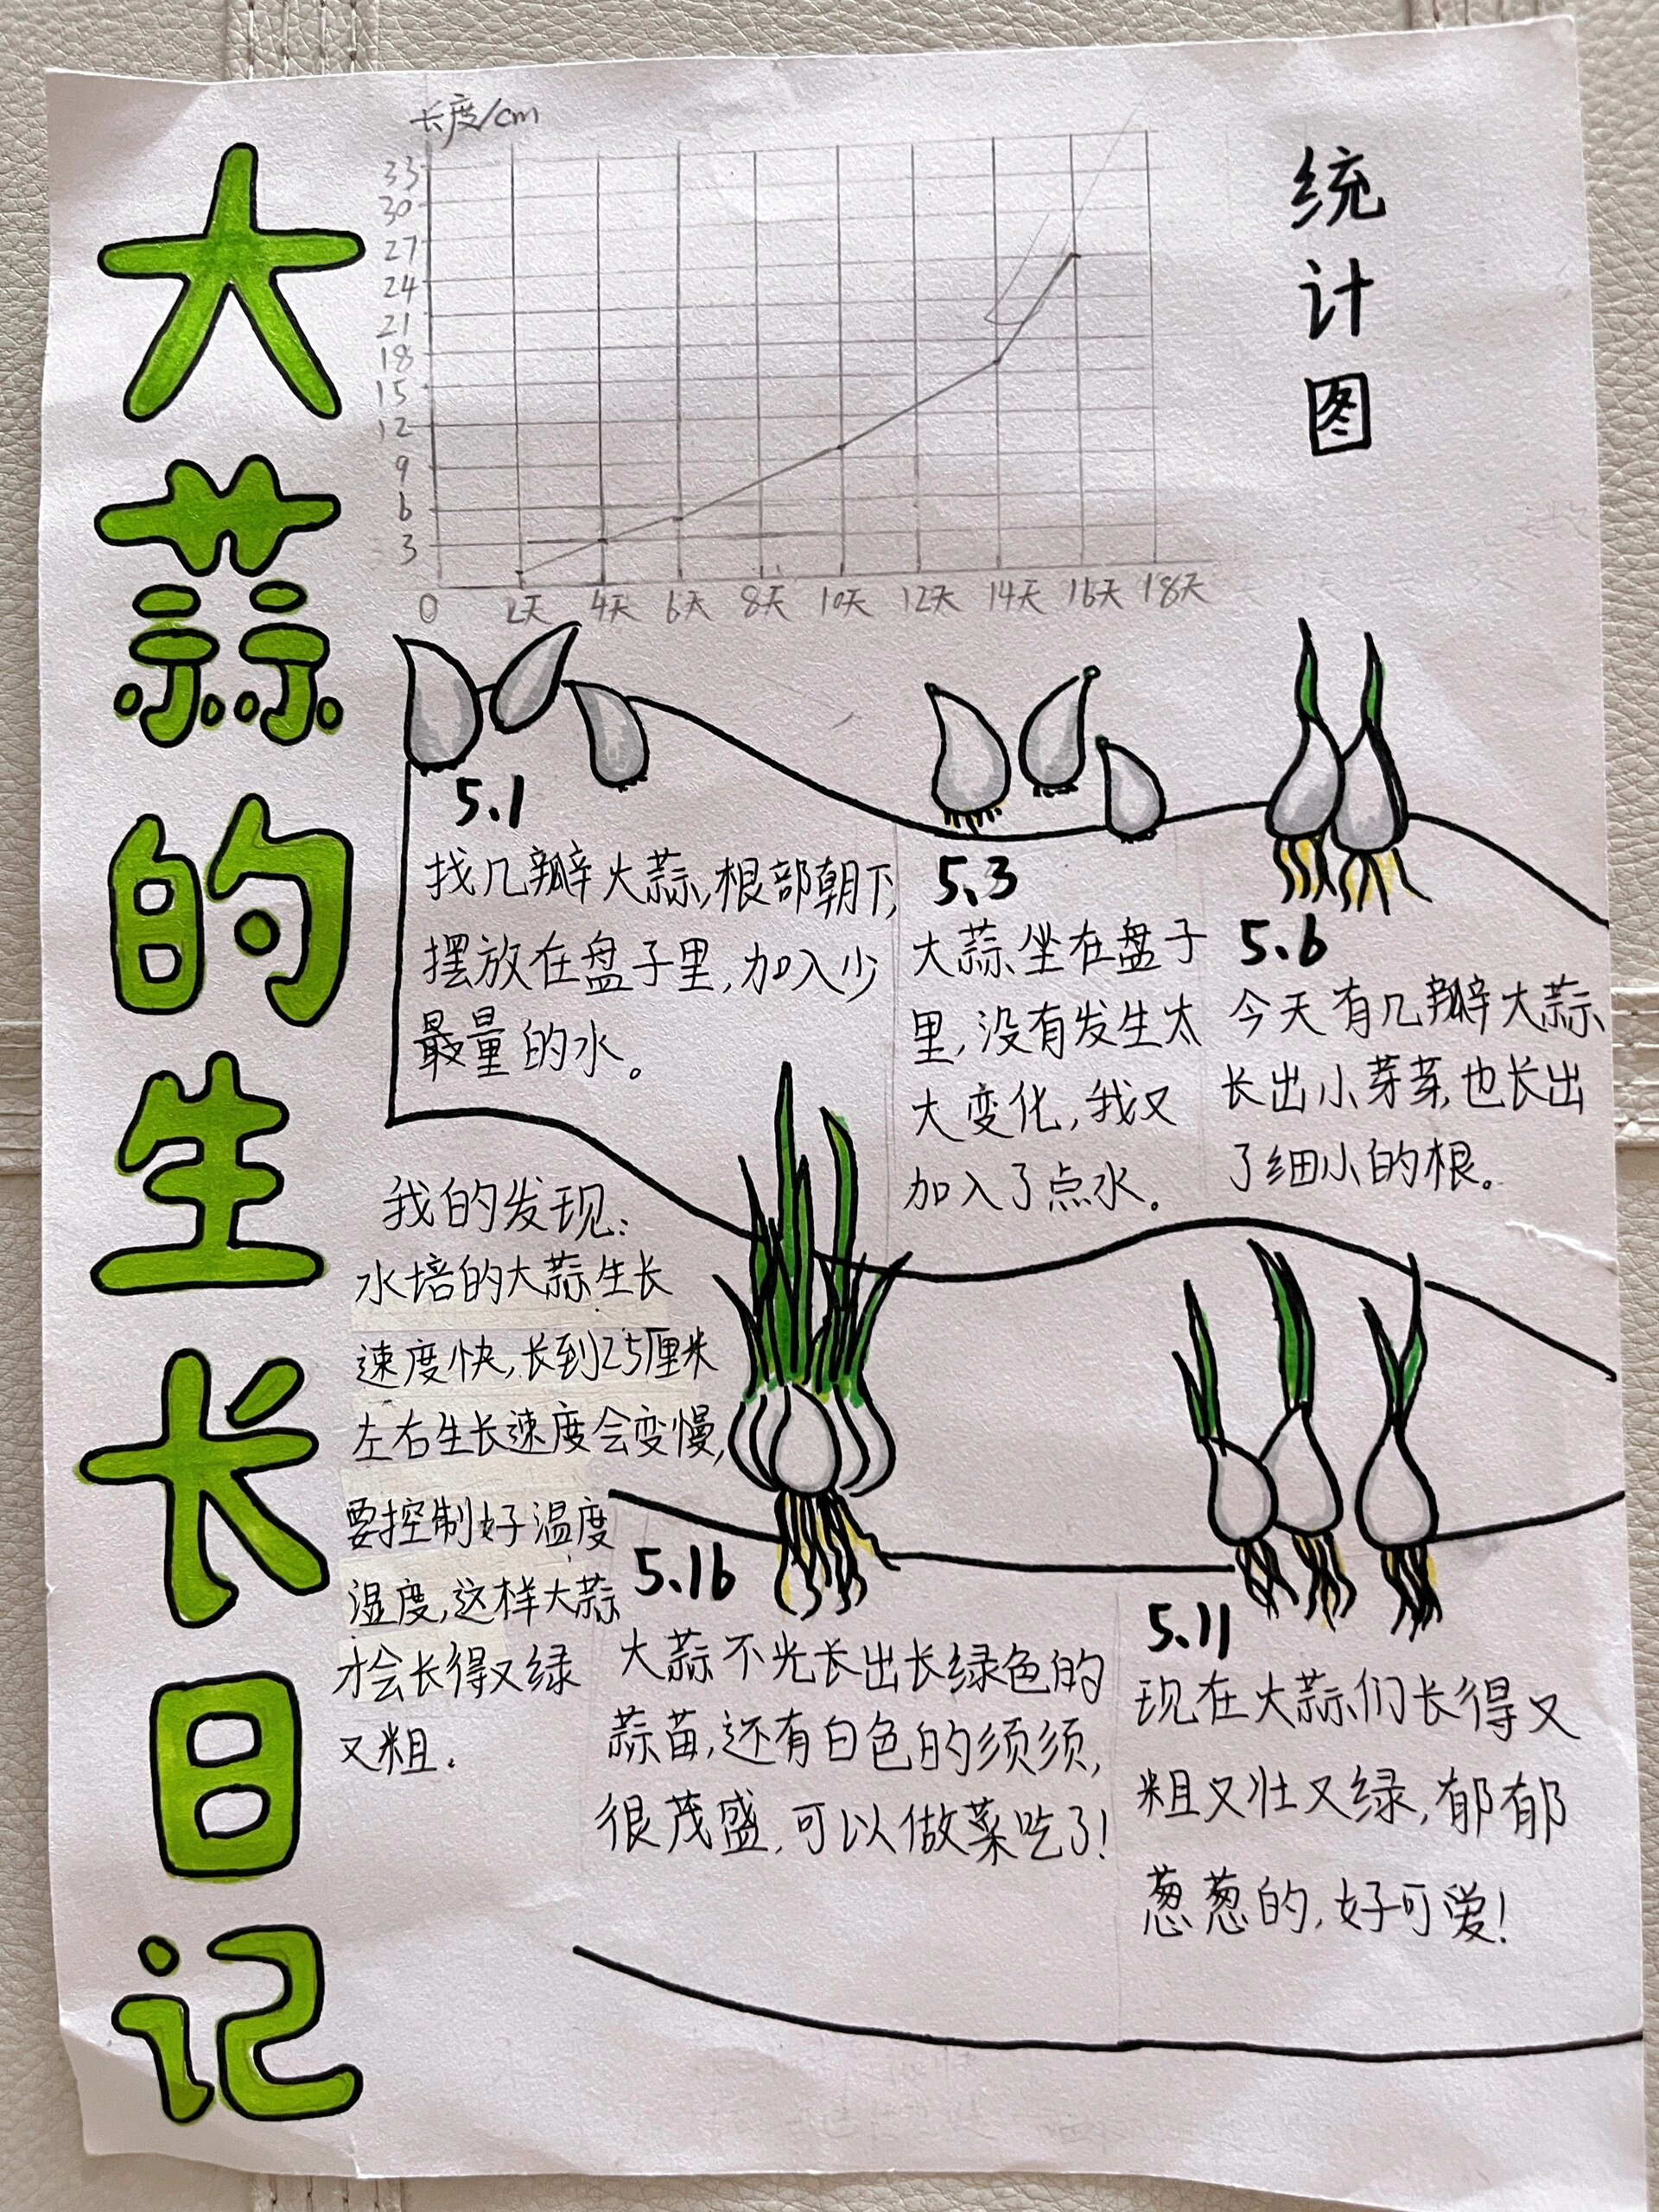 大蒜的生长日记
长度/cm
33
30
27
24
21
18
15
12
9
6
3
0 2天 4天 6天 8天 10天 12天 14天 16天 18天
统计图
5.1
找几瓣大蒜,根部朝下,
摆放在盘子里,加入少
最量的水。
5.3
大蒜坐在盘子
里,没有发生太
大变化,我又
加入了点水。
5.6
今天有几瓣大蒜
长出小芽芽,也长出
了细小的根。
我的发现:
水培的大蒜生长
速度快,长到25厘米
左右生长速度会变慢,
要控制好温度
温度,这样大蒜
才会长得又绿
又粗.
5.16
大蒜不光长出长绿色的
蒜苗,还有白色的须须,
很茂盛,可以做菜吃了!
5.11
现在大蒜们长得又
粗又壮又绿,郁郁
葱葱的,好可爱!